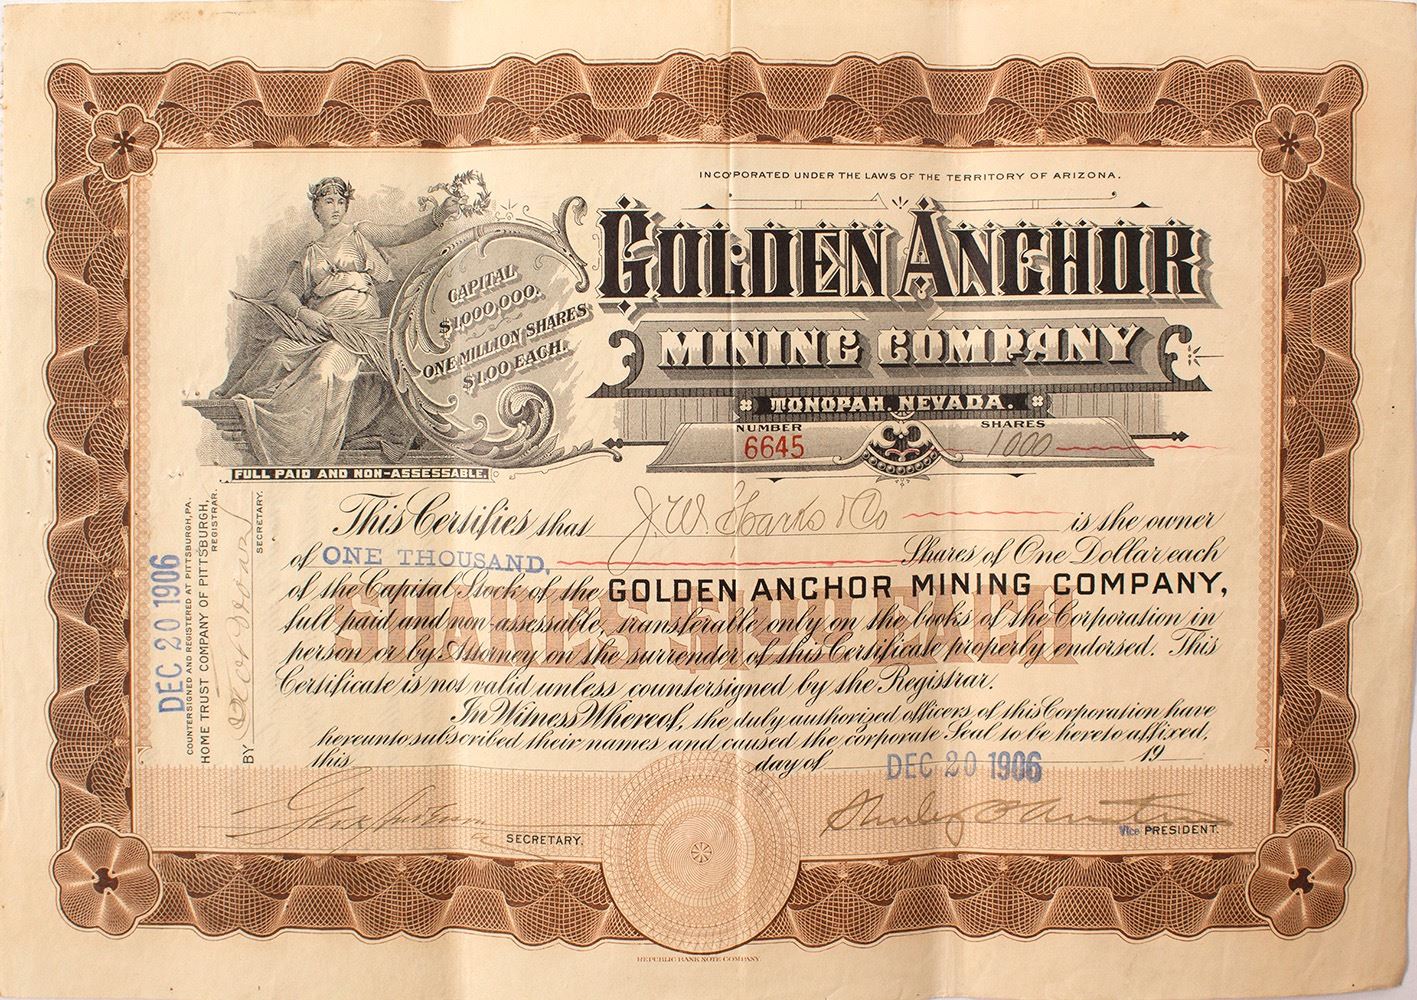 INCO'PORATED UNDER THE LAWS OF THE TERRITORY OF ARIZONA.
GOLDEN ANCHOR
MINING COMPANY
TONOPAH, NEVADA.
CAPITAL
$1,000,000.
ONE MILLION SHARES
$1.00 EACH.
NUMBER
6645
SHARES
1000
FULL PAID AND NON-ASSESSABLE.
This Certifies that J. W. & Co is the owner
of ONE THOUSAND, Shares of One Dollar each
of the Capital Stock of the GOLDEN ANCHOR MINING COMPANY,
full paid and non-assessable, transferable only on the books of the Corporation in
person or by Attorney on the surrender of this Certificate properly endorsed. This
Certificate is not valid unless countersigned by the Registrar.
In Witness Whereof, the duly authorized officers of this Corporation have
hereunto subscribed their names and caused the corporate Seal to be hereto affixed,
this day of DEC 20 1906 19
SHARES $1.00 EACH
SECRETARY.
Vice PRESIDENT.
DEC 20 1906
COUNTERSIGNED AND REGISTERED AT PITTSBURGH, PA.
HOME TRUST COMPANY OF PITTSBURGH,
REGISTRAR.
BY
SECRETARY.
REPUBLIC BANK NOTE COMPANY.